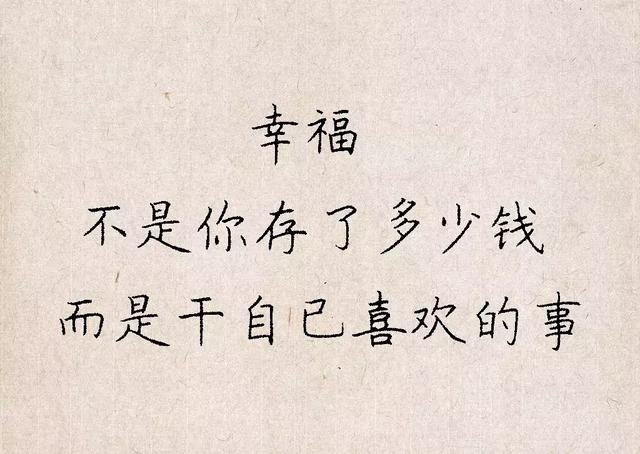 幸福
不是你存了多少钱
而是干自己喜欢的事